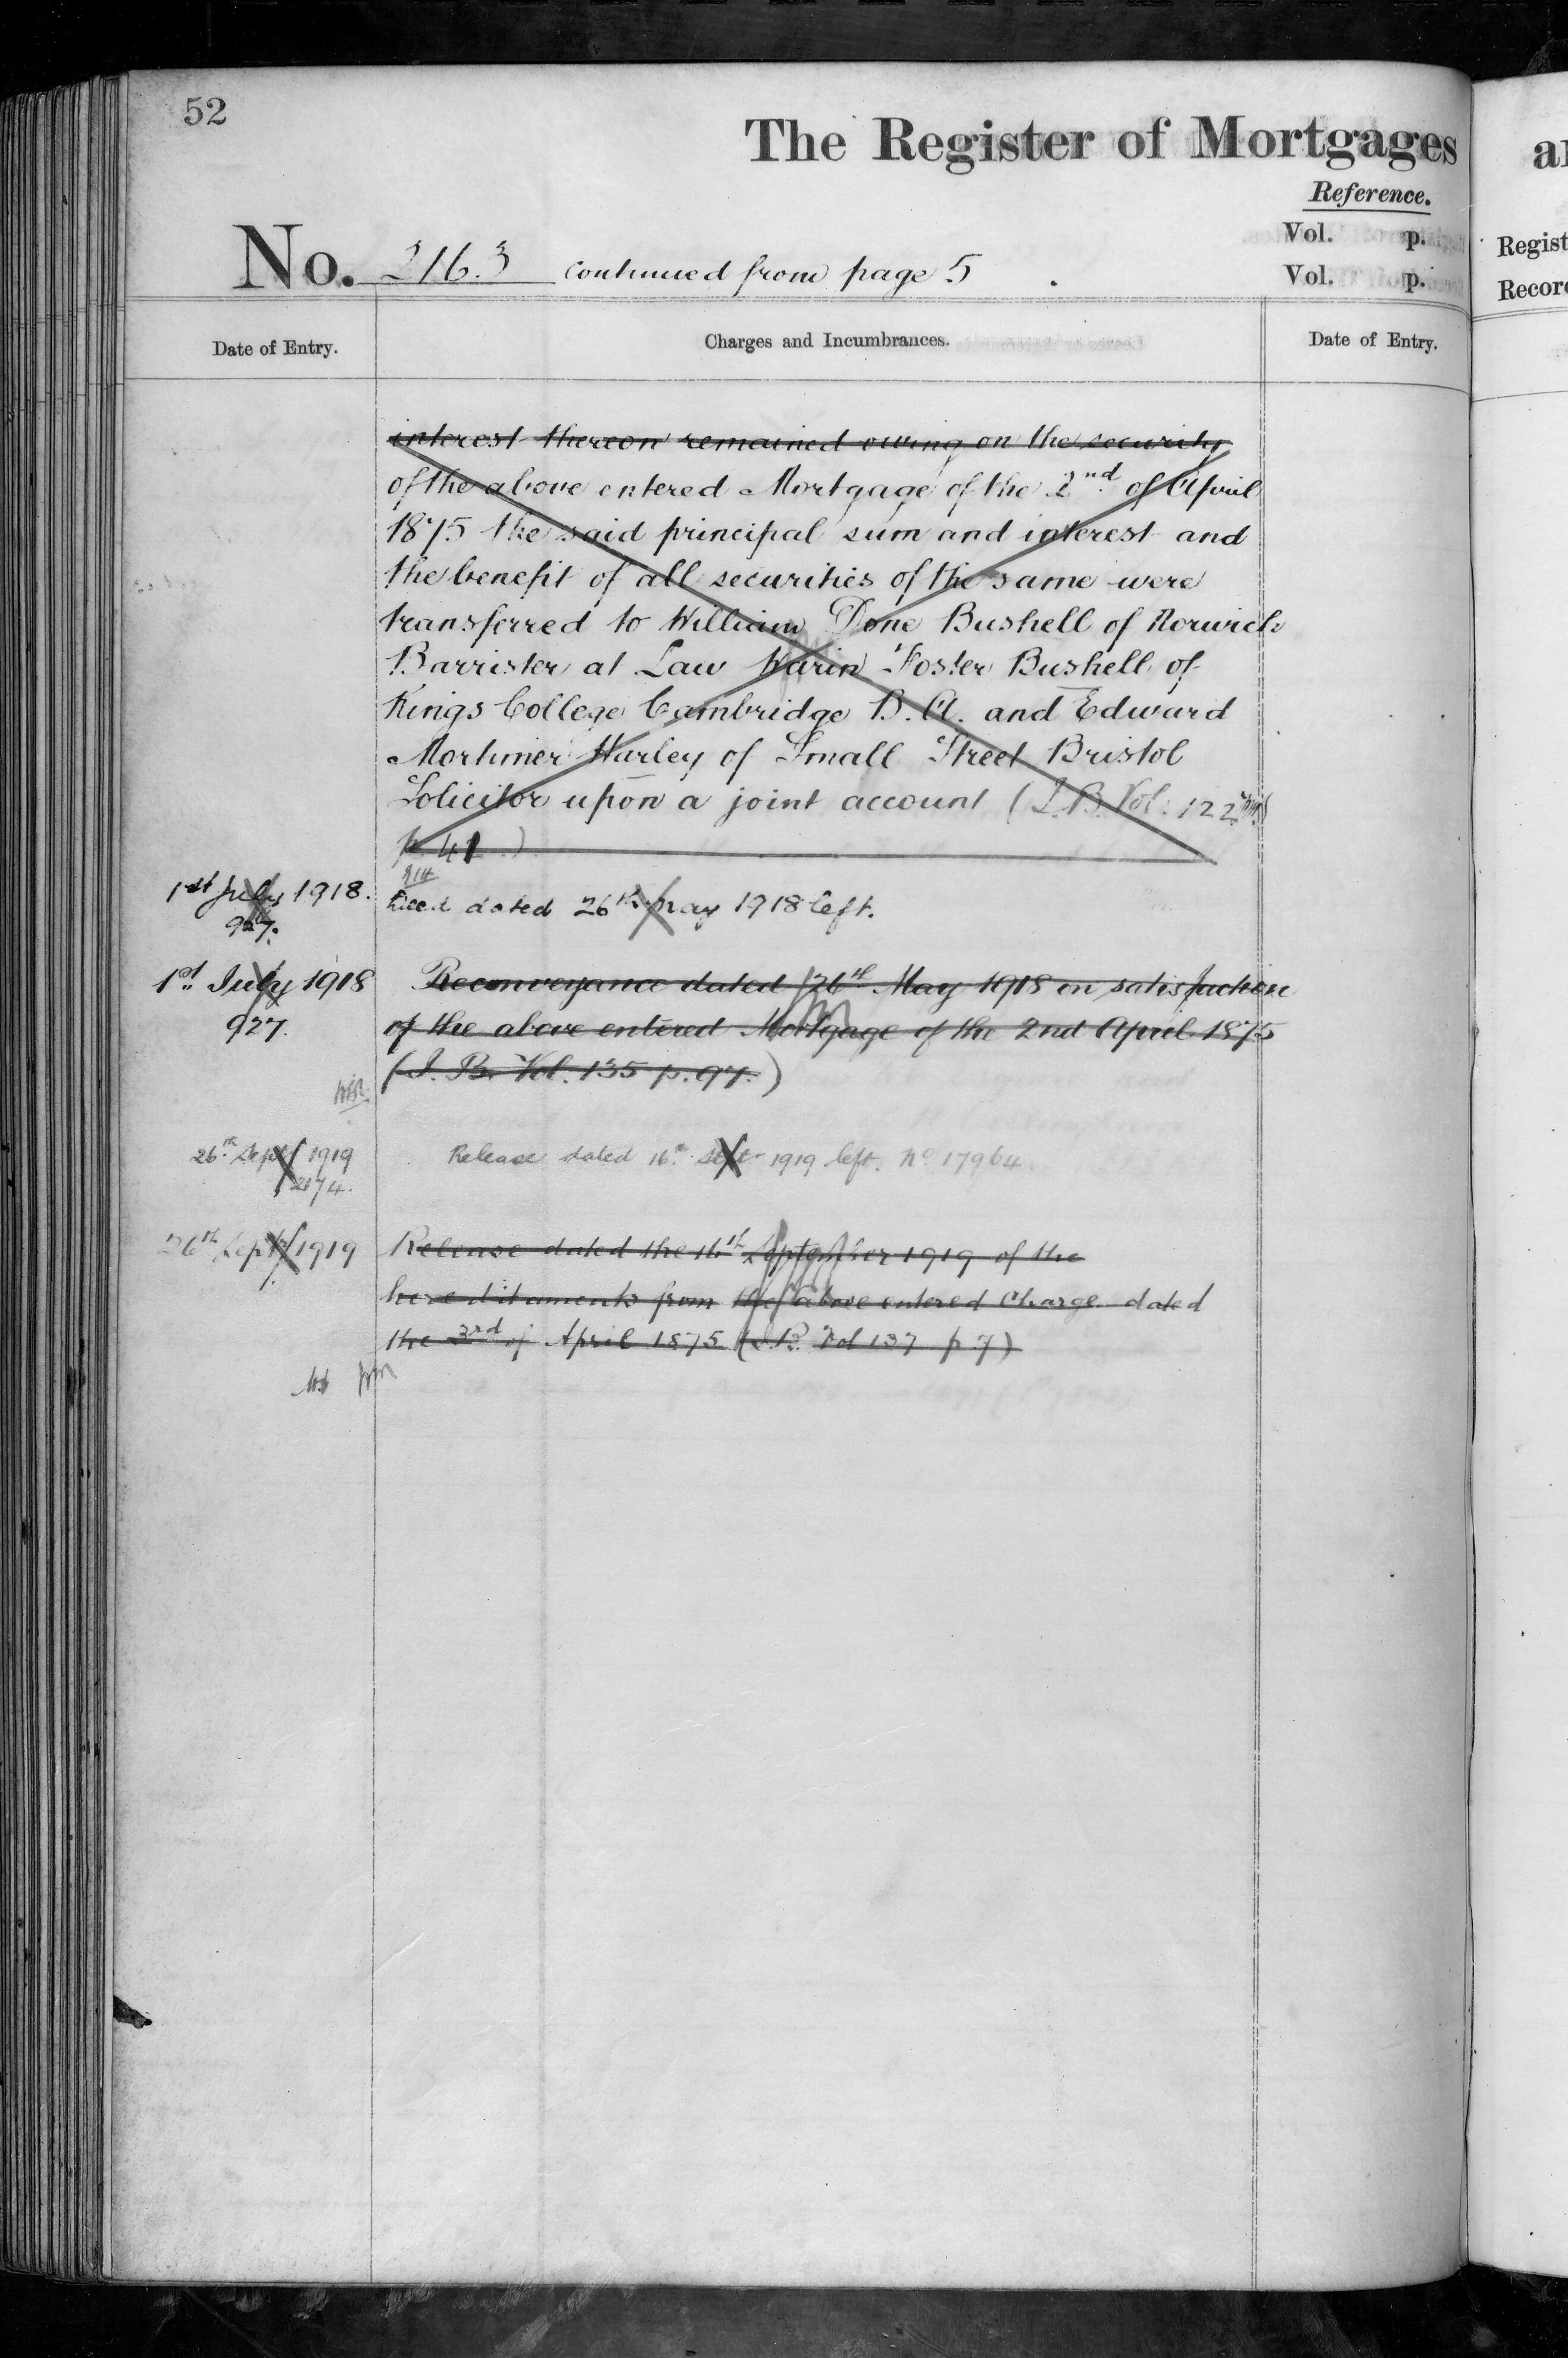 52
The Register of Mortgages
Reference.
Vol. p.
No. 2163 continued from page 5
Vol. p.
Regist
Record
Date of Entry.
Charges and Incumbrances.
Date of Entry.
interest thereon remained owing on the security
of the above entered Mortgage of the 2nd of April
1875 the said principal sum and interest and
the benefit of all securities of the same were
transferred to William Done Bushell of Norwich
Barrister at Law Warin Foster Bushell of
Kings College Cambridge B.A. and Edward
Mortimer Harley of Small Street Bristol
Solicitor upon a joint account (I.B. Vol: 122
p. 41)
1st July 1918.
927.
Deed dated 26th May 1918 left.
1st July 1918
927.
Reconveyance dated 26th May 1918 in satisfaction
of the above entered Mortgage of the 2nd April 1875
(I. B. Vol. 135 p. 97.)
26th Sept 1919
2174.
Release dated 16th Sept 1919 left. No 17964
26th Sept 1919
Release dated the 16th September 1919 of the
hereditaments from the above entered Charge dated
the 3rd of April 1875 (I.B. Vol 137 p 7)